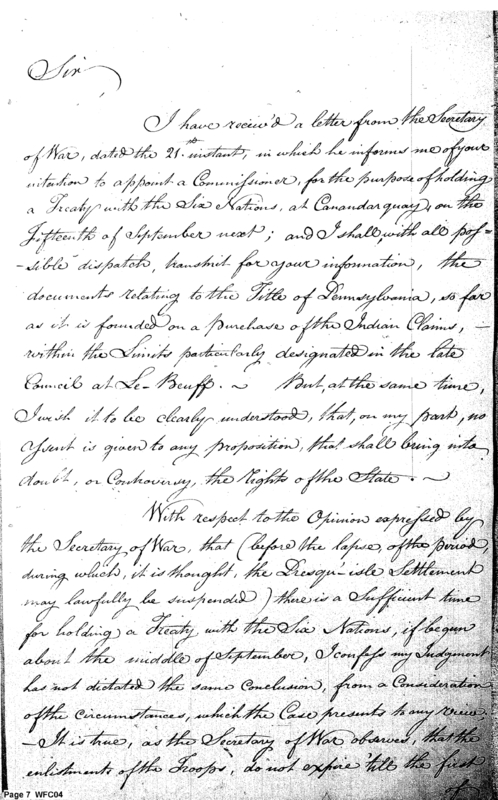 Sir
I have receiv'd a letter from the Secretary
of War, dated the 21st instant, in which he informs me of your
intention to appoint a Commissioner, for the purpose of holding
a Treaty with the Six Nations, at Canandarquay, on the
Fifteenth of September next; and I shall, with all pos-
-sible dispatch, transmit for your information, the
documents relating to the Title of Pennsylvania, so far
as it is founded on a purchase of the Indian Claims, –
within the Limits particularly designated in the late
Council at Le-Beuff. ~ But, at the same time,
I wish it to be clearly understood, that, on my part, no
assent is given to any proposition, that shall bring into
doubt, or Controversy, the rights of the State. ~
With respect to the Opinion expressed by
the Secretary of War, that (before the lapse, of the period,
during which, it is thought, the Presqu'-isle Settlement
may lawfully be suspended) there is a Sufficient time
for holding a Treaty with the Six Nations, if begun
about the middle of September, I confess my Judgment
has not dictated the same conclusion, from a Consideration
of the circumstances, which the Case presents to my view.
– It is true, as the Secretary of War observes, that the
enlistments of the Troops, do not expire 'till the first
of
Page 7 WFC04